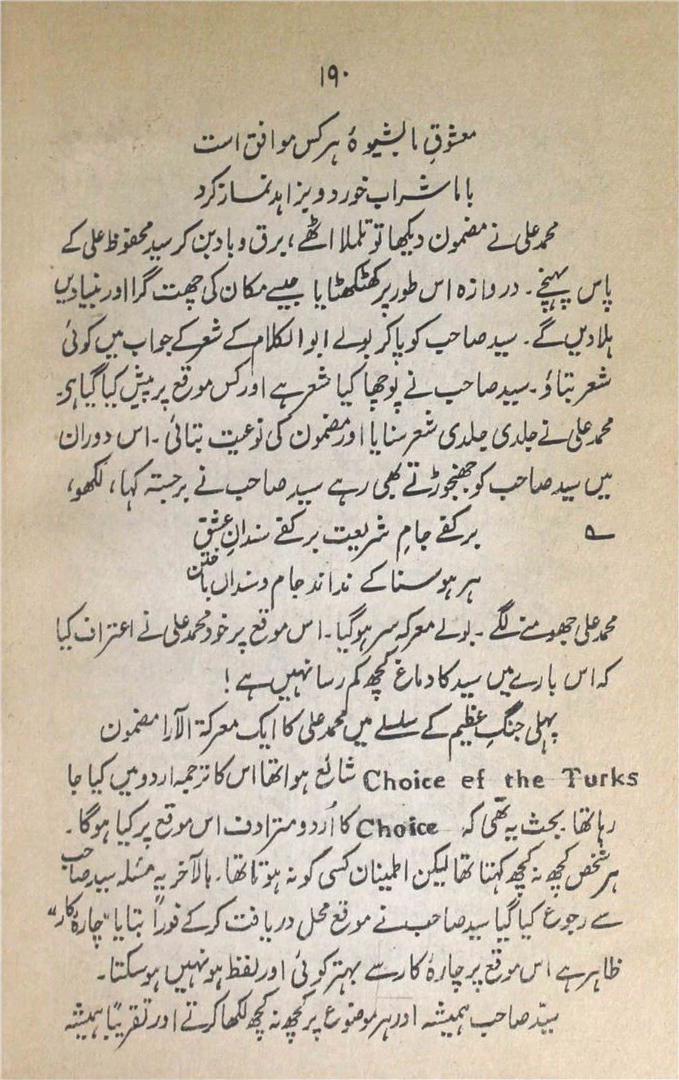 ۱۹۰
معشوقِ ما بشیوۂ ہر کس موافق است
با ما شراب خورد و بزاہد نماز کرد
محمد علی نے مضمون دیکھا تو تلملا اٹھے، برق و باد بن کر سید محفوظ علی کے
پاس پہنچے۔ دروازہ اس طور پر کھٹکھٹایا جیسے مکان کی چھت گرا اور بنیادیں
ہلا دیں گے۔ سید صاحب کو پا کر بولے ابوالکلام کے شعر کے جواب میں کوئی
شعر بتاؤ۔ سید صاحب نے پوچھا کیا شعر ہے اور کس موقع پر پیش کیا گیا ہی۔
محمد علی نے جلدی جلدی شعر سنایا اور مضمون کی نوعیت بتائی۔ اس دوران
میں سید صاحب کو جھنجوڑتے بھی رہے سید صاحب نے برجستہ کہا، لکھو،
؎ بر کفے جامِ شریعت بر کفے سندانِ عشق
ہر ہوسنا کے نداند جام و سنداں باختن
محمد علی جھومنے لگے۔ بولے معرکہ سر ہو گیا۔ اس موقع پر خود محمد علی نے اعتراف کیا
کہ اس بارے میں سید کا دماغ کچھ کم رسا نہیں ہے!
پہلی جنگِ عظیم کے سلسلے میں محمد علی کا ایک معرکۃ الآرا مضمون
Choice ef the Turks شائع ہوا تھا اس کا ترجمہ اردو میں کیا جا
رہا تھا۔ بحث یہ تھی کہ Choice کا اُردو مترادف اس موقع پر کیا ہوگا۔
ہر شخص کچھ نہ کچھ کہتا تھا لیکن اطمینان کسی کو نہ ہوتا تھا۔ بالآخر یہ مسئلہ سید صاحب
سے رجوع کیا گیا سید صاحب نے موقع محل دریافت کر کے فوراً بتایا "چارۂ کار"
ظاہر ہے اس موقع پر چارۂ کار سے بہتر کوئی اور لفظ ہو نہیں ہو سکتا۔
سیّد صاحب ہمیشہ اور ہر موضوع پر کچھ نہ کچھ لکھا کرتے اور تقریباً ہمیشہ